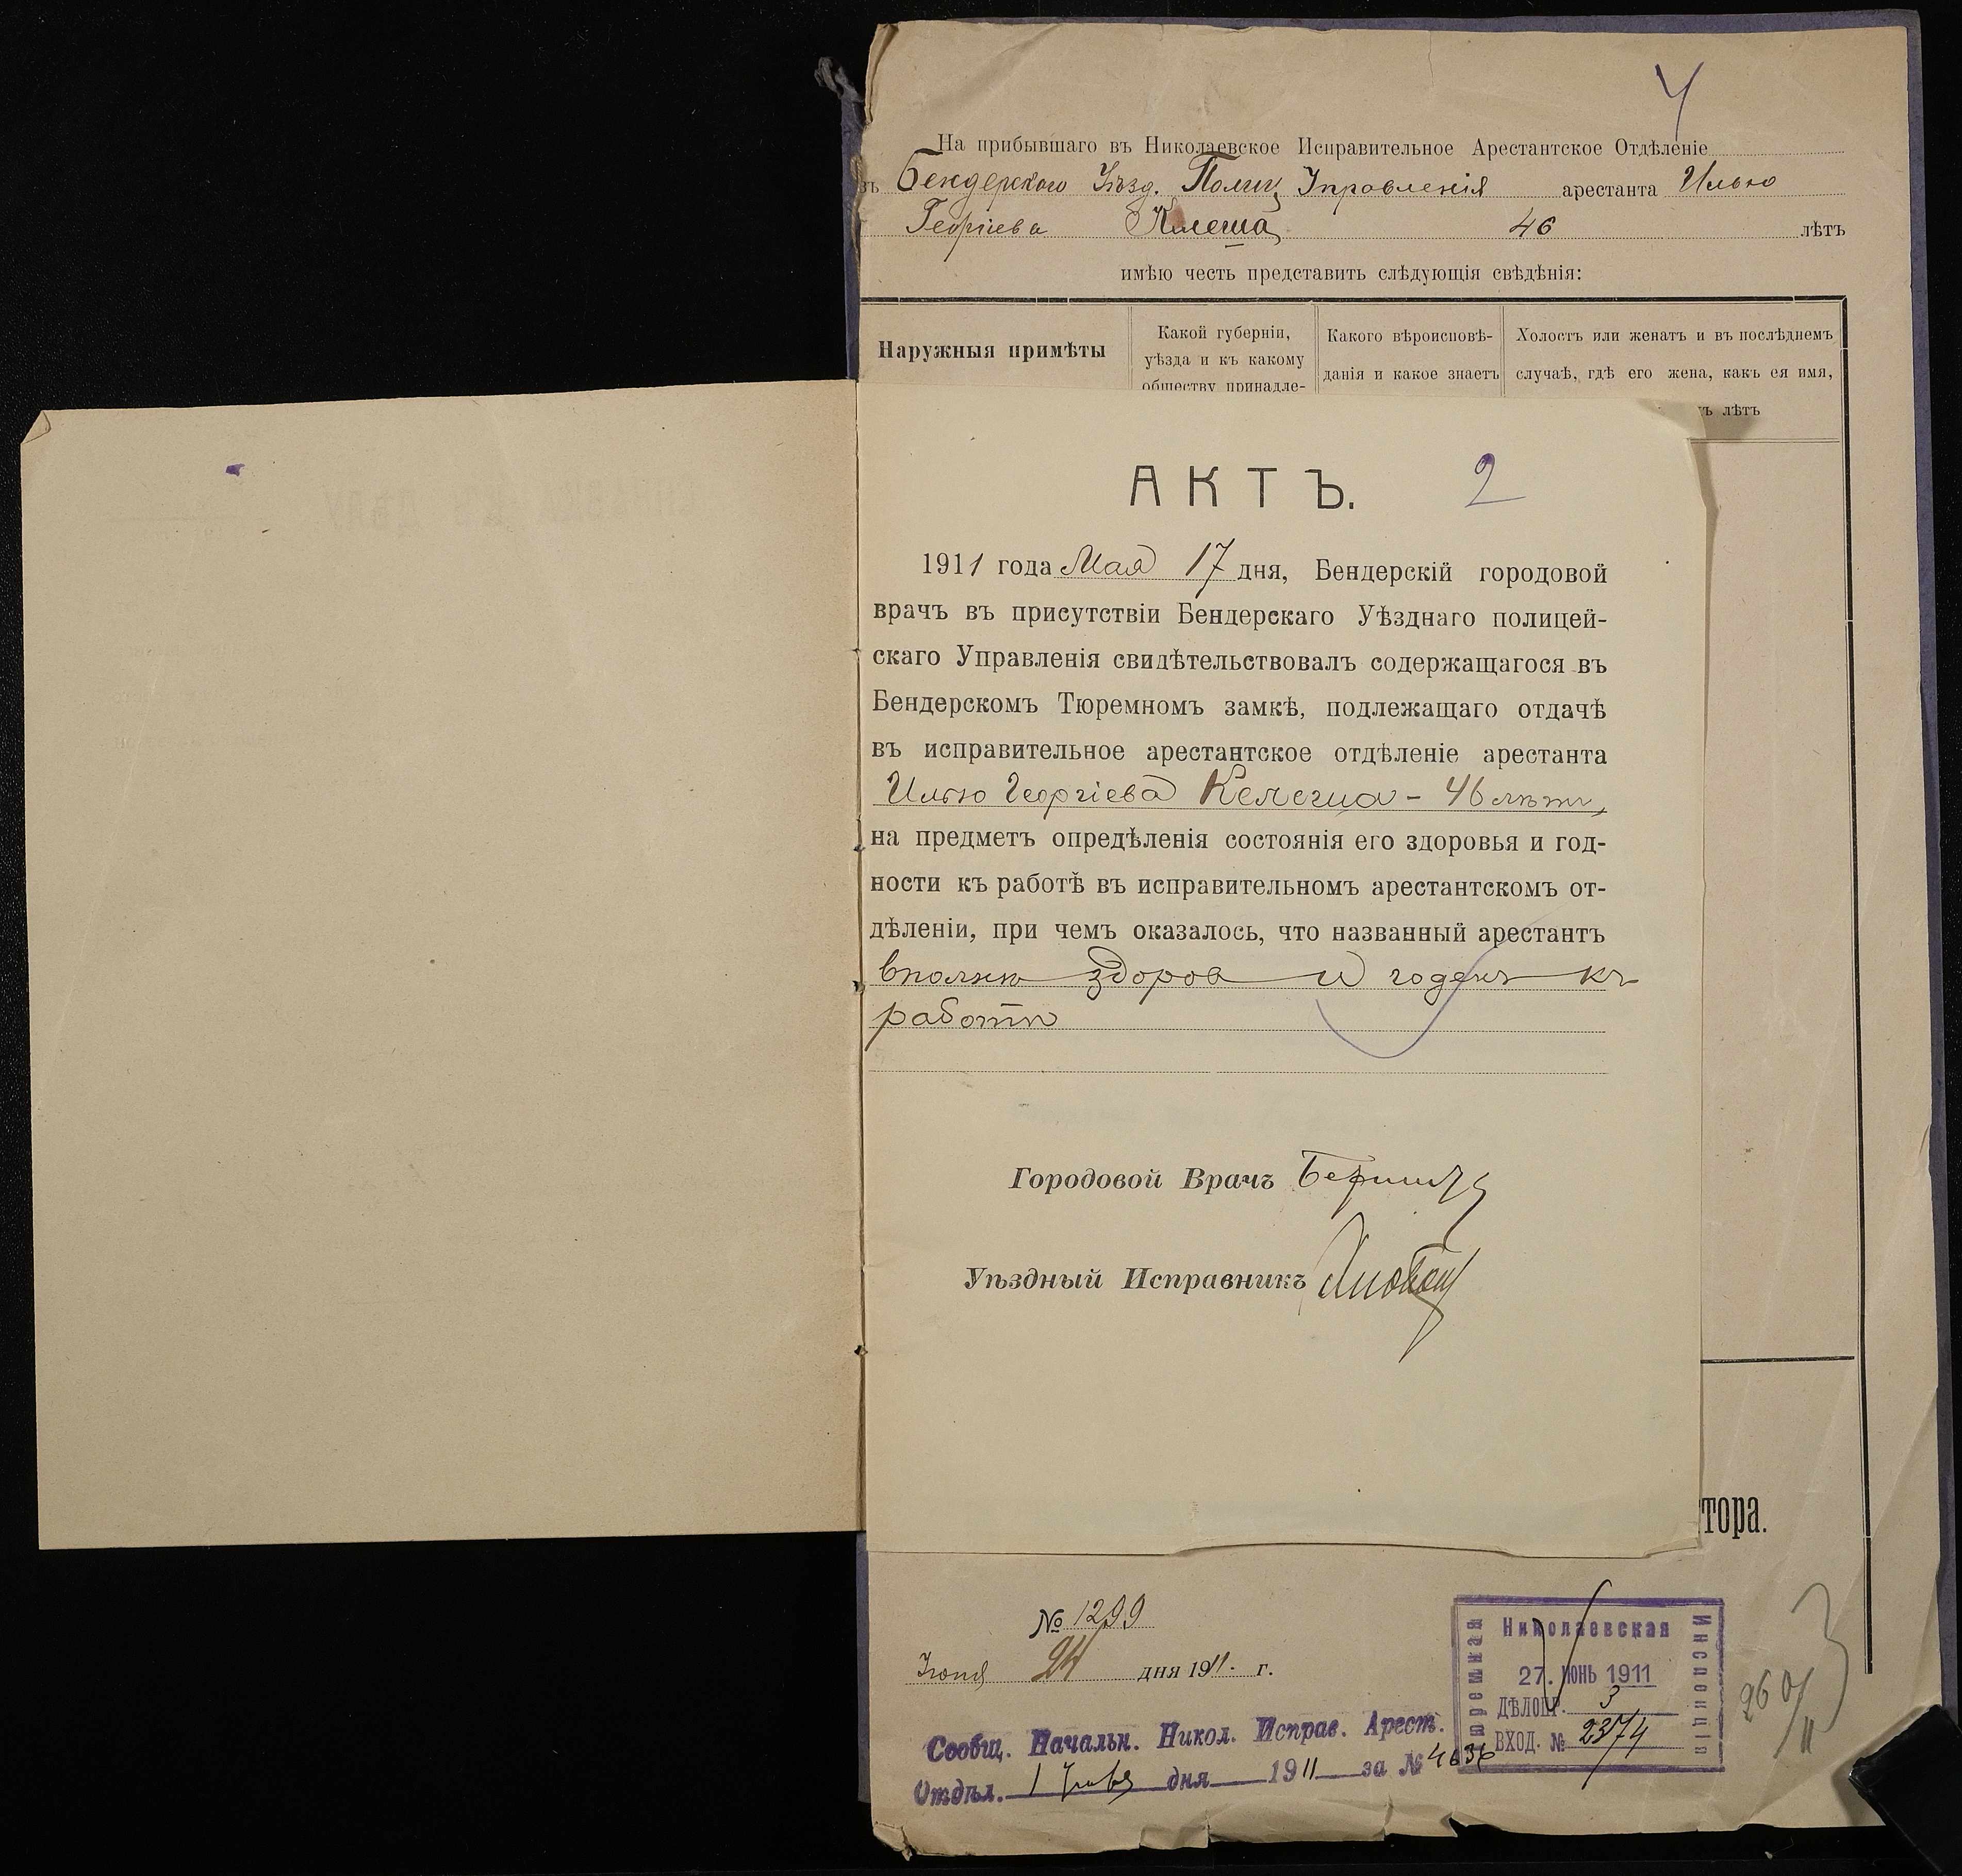 4
На прибывшаго въ Николаевское Исправительное Арестантское Отдѣленіе
въ Бендерского Уѣзд. Полиц Управленія арестанта Илью
Георгіева Клеша 46 лѣтъ
имѣю честь представить слѣдующія свѣдѣнія:
Наружныя примѣты
Какой губерніи,
уѣзда и къ какому
обществу принадле-
Какого вѣроисповѣ-
данія и какое знаетъ
Холостъ или женатъ и въ послѣднемъ
случаѣ, гдѣ его жена, какъ ея имя,
лѣтъ
АКТЪ. 2
1911 года Мая 17 дня, Бендерскій городовой
врачъ въ присутствіи Бендерскаго Уѣзднаго полицей-
скаго Управленія свидѣтельствовалъ содержащагося въ
Бендерскомъ Тюремномъ замкѣ, подлежащаго отдачѣ
въ исправительное арестантское отдѣленіе арестанта
Илью Георгіева Келеша - 46 лѣтъ,
на предметъ опредѣленія состоянія его здоровья и год-
ности къ работѣ въ исправительномъ арестантскомъ от-
дѣленіи, при чемъ оказалось, что названный арестантъ
вполнѣ здоров и годенъ къ
работѣ
Городовой Врачъ
Уѣздный Исправникъ
тора.
№ 1299
Іюня 24 дня 1911 г.
Николаевская
Тюремная
Инспекція
27. ІЮНЬ 1911
ДѢЛОПР. 3
ВХОД. № 2374
Сообщ. Начальн. Никол. Исправ. Арест.
Отдѣл. 1 дня 1911 за № 4636
260/11